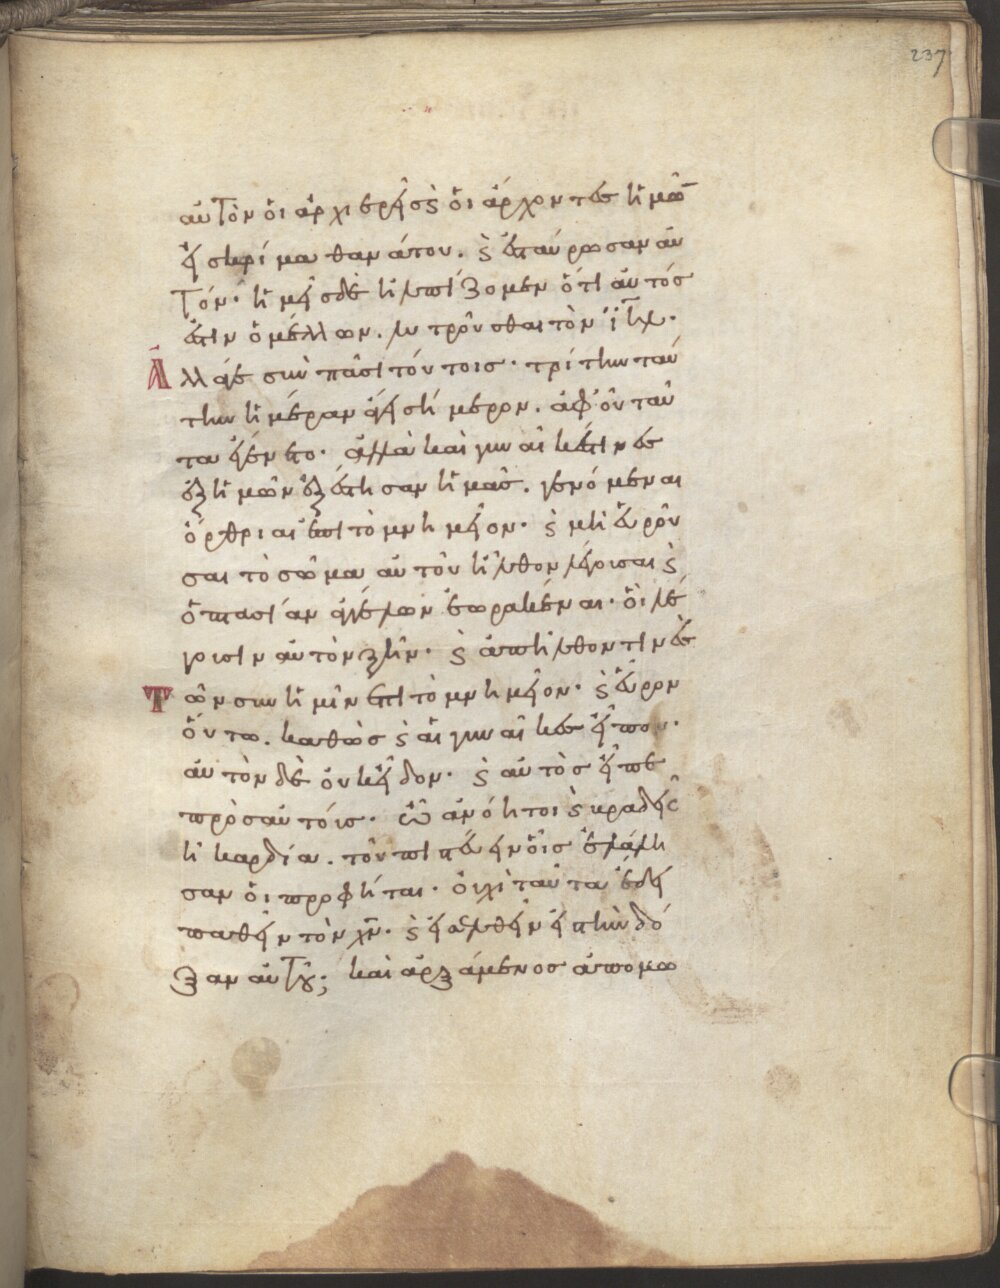 237
αὐτὸν ὅι ἀρχιερεῖσ ϛ ὅι ἄρχοντεσ ἡμῶ̅
εἰσ κρίμα θανάτου. ϛ ἐσταύρωσαν αὐ
τόν· ἡμεῖσ δὲ ἠλπίζομεν ὅτι αὐτόσ
ἐστιν ὁ μέλλων. λυτροῦσθαι τὸν ἰη̅λ·
Ἀλλάγε σὺν πᾶσι τούτοισ· τρίτην ταύ
την ἡμέραν ἄγει σήμερον. ἀφ' οὗ ταῦ
τα ἐγένετο· ἀλλὰ καὶ γυναῖκέσ τινεσ
ἐξ ἡμῶν ἐξέστησαν ἡμᾶσ. γενόμεναι
ὄρθριαι ἐπὶ τὸ μνημεῖον· ϛ μὴ εὑροῦ
σαι τὸ σῶμα αὐτοῦ ἦλθον λέγουσαι ϛ
ὀπτασίαν ἀγγέλων ἑωρακέναι· ὅι λέ
γουσιν αὐτὸν ζῆν· ϛ ἀπῆλθον τινὲσ
Τῶν σὺν ἡμῖν ἐπὶ τὸ μνημεῖον· ϛ εὗρον
ὅυτω. καθὼσ ϛ ἁι γυναῖκεσ εἶπον·
αὐτὸν δὲ ὀυκ εἶδον· ϛ αὐτὸσ εἶπε
πρὸσ αὐτούσ· ὦ ἀνόητοι ϛ βραδεῖσ
τῆ καρδία. τοῦ πιστεύειν ὅισ ἐλάλη
σαν ὅι προφῆται· ὀυχὶ ταῦτα ἔδει
παθεῖν τὸν χ̅ν̅· ϛ εἰσελθεῖν εἰσ τὴν δό
ξαν αὐτοῦ; καὶ ἀρξάμενοσ ἀπὸ μω